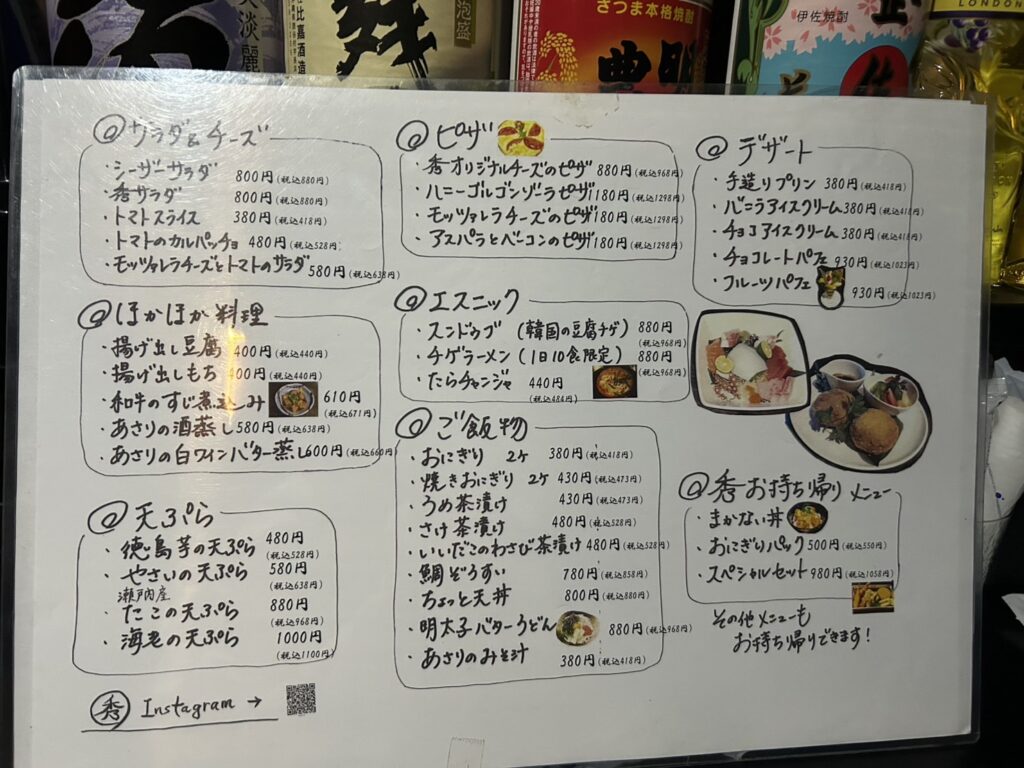 淡麗
比嘉酒造
泡盛
さつま本格焼酎
伊佐焼酎
LONDON
サラダ&チーズ
・シーザーサラダ 800円(税込880円)
・秀サラダ 800円(税込880円)
・トマトスライス 380円(税込418円)
・トマトのカルパッチョ 480円(税込528円)
・モッツァレラチーズとトマトのサラダ 580円(税込638円)
ほかほか料理
・揚げ出し豆腐 400円(税込440円)
・揚げ出しもち 400円(税込440円)
・和牛のすじ煮込み 610円(税込671円)
・あさりの酒蒸し 580円(税込638円)
・あさりの白ワインバター蒸し 600円(税込660円)
天ぷら
・徳島芋の天ぷら 480円(税込528円)
・やさいの天ぷら 580円(税込638円)
瀬戸内産
・たこの天ぷら 880円(税込968円)
・海老の天ぷら 1000円(税込1100円)
秀 Instagram →
ピザ
・秀オリジナルチーズのピザ 880円(税込968円)
・ハニーゴルゴンゾーラピザ 1180円(税込1298円)
・モッツァレラチーズのピザ 1180円(税込1298円)
・アスパラとベーコンのピザ 1180円(税込1298円)
エスニック
・スンドゥブ(韓国の豆腐チゲ) 880円(税込968円)
・チゲラーメン(1日10食限定) 880円(税込968円)
・たらチャンジャ 440円(税込484円)
ご飯物
・おにぎり 2ケ 380円(税込418円)
・焼きおにぎり 2ケ 430円(税込473円)
・うめ茶漬け 430円(税込473円)
・さけ茶漬け 480円(税込528円)
・いいだこのわさび茶漬け 480円(税込528円)
・鯛ぞうすい 780円(税込858円)
・ちょっと天丼 800円(税込880円)
・明太子バターうどん 880円(税込968円)
・あさりのみそ汁 380円(税込418円)
デザート
・手造りプリン 380円(税込418円)
・バニラアイスクリーム 380円(税込418円)
・チョコアイスクリーム 380円(税込418円)
・チョコレートパフェ 930円(税込1023円)
・フルーツパフェ 930円(税込1023円)
秀お持ち帰りメニュー
・まかない丼
・おにぎりパック 500円(税込550円)
・スペシャルセット 980円(税込1058円)
その他メニューも
お持ち帰りできます!